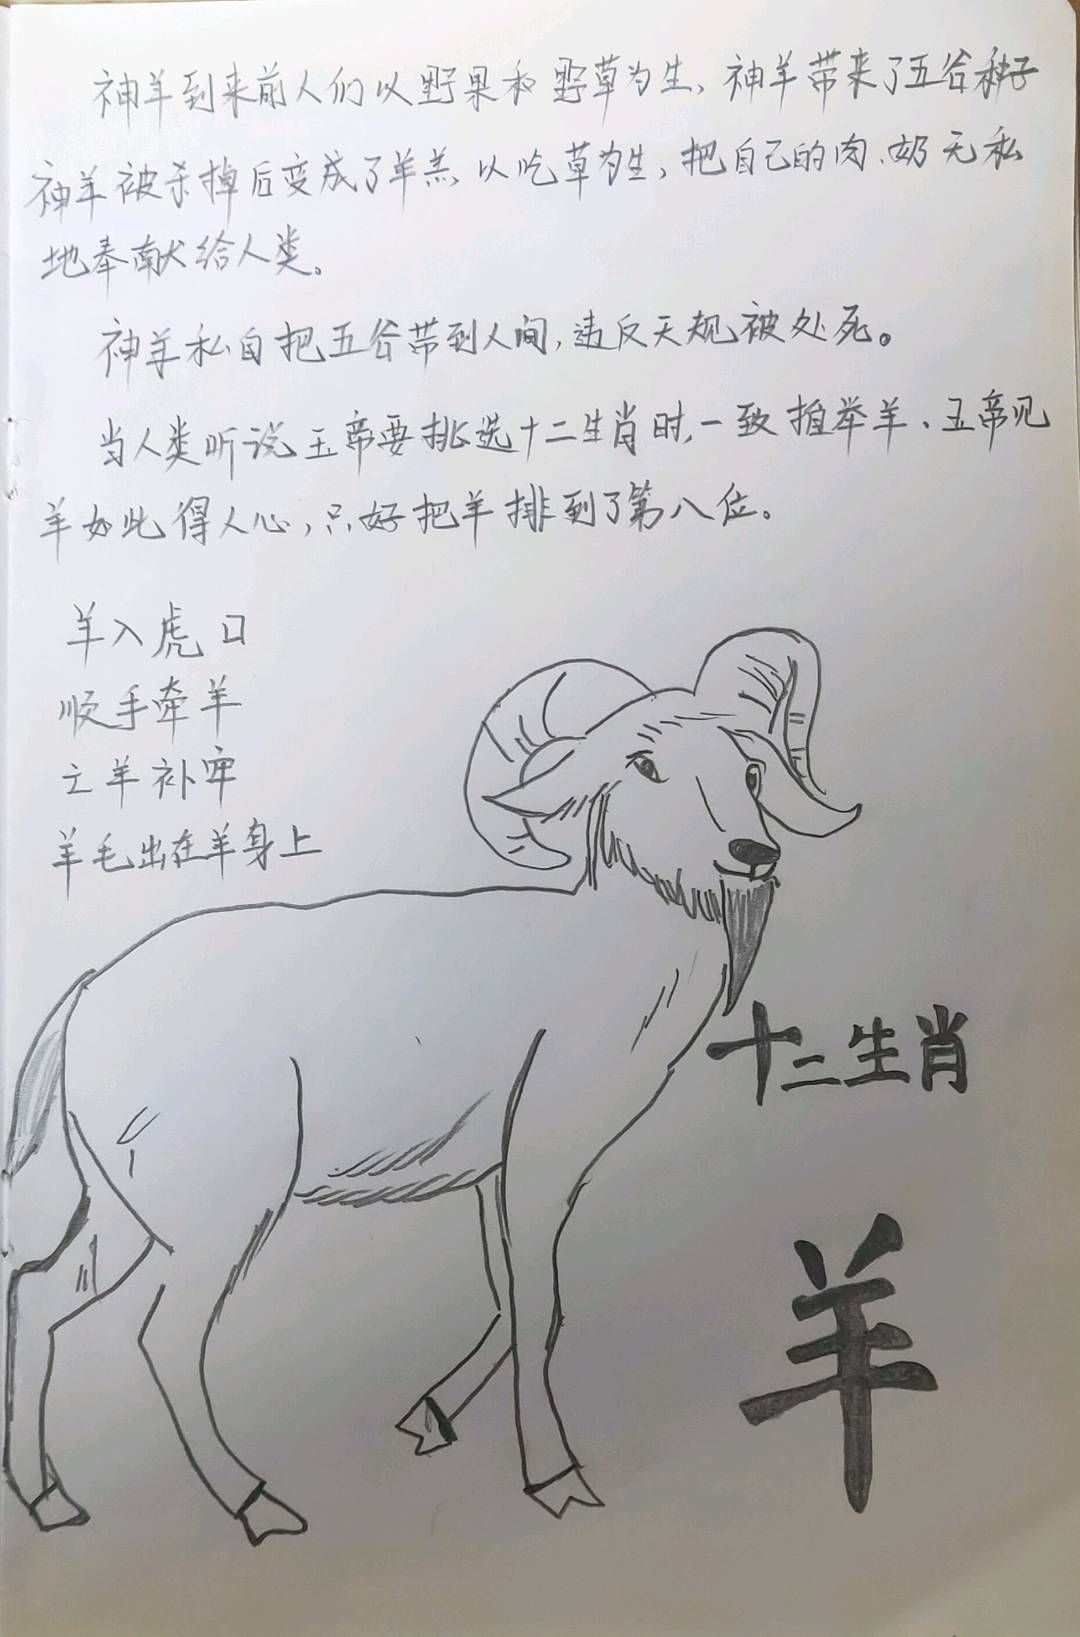 神羊到来前人们以野果和野草为生，神羊带来了五谷种子
神羊被杀掉后变成了羊羔，以吃草为生，把自己的肉、奶无私
地奉献给人类。
神羊私自把五谷带到人间，违反天规被处死。
当人类听说玉帝要挑选十二生肖时，一致推举羊、玉帝见
羊如此得人心，只好把羊排到了第八位。
羊入虎口
顺手牵羊
亡羊补牢
羊毛出在羊身上
十二生肖
羊